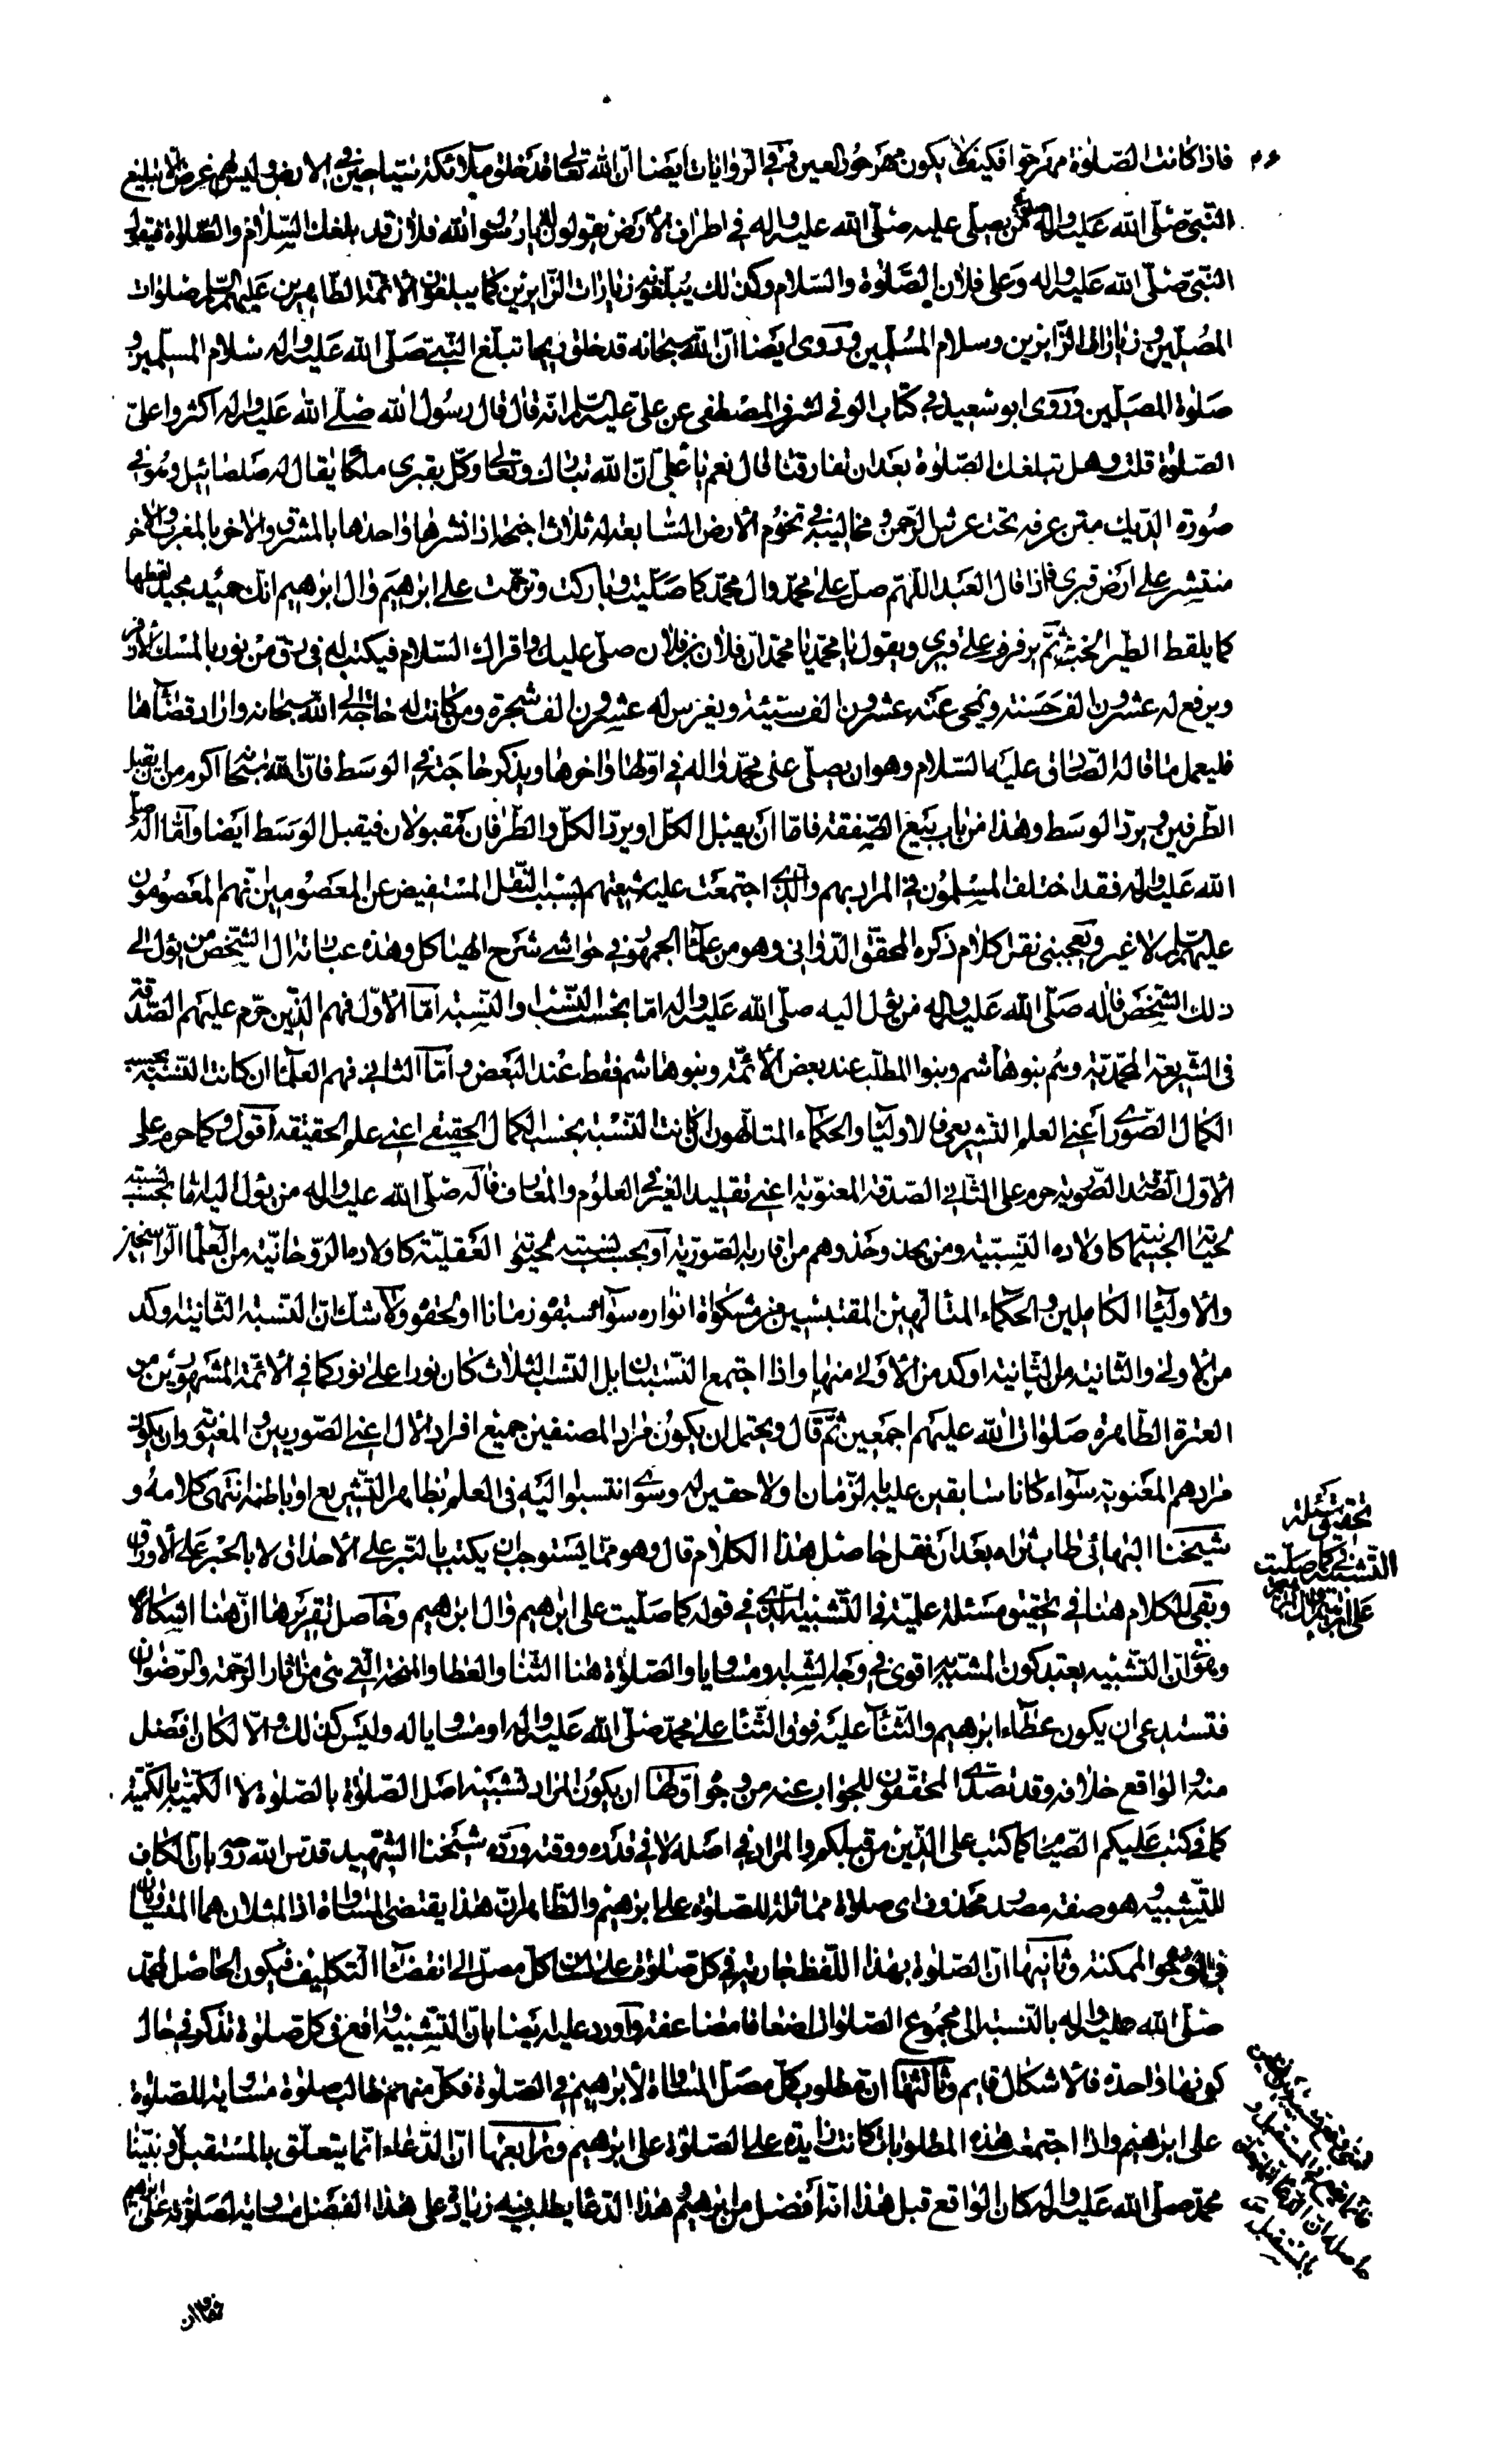 فاذا كانت الصلوة مهر حوا فكيف لا يكون مهر حور العين وفى الروايات ايضا ان الله تعالى قد خلق ملائكة سياحين فى الارض وليس لهم غرض الا تبليغ
النبى صلى الله عليه واله من يصلى عليه صلى الله عليه واله فى اطراف الارض يقولون له يا رسول الله فلان قد بلغك السلام والصلوة فيقول
النبى صلى الله عليه واله وعلى فلان الصلوة والسلام وكذلك يبلغونه زيارات الزايرين كما يبلغون الائمة الطاهرين عليهم السلم صلوات
المصلين وزيارات الزايرين وسلام المسلمين وروى ايضا ان الله سبحانه قد خلق ريحا تبلغ النبى صلى الله عليه واله سلام المسلمين و
صلوة المصلين وروى ابو سعيد فى كتاب الوفى لشرف المصطفى عن على عليه السلم انه قال قال رسول الله صلى الله عليه واله اكثروا على
الصلوة قلت وهل تبلغك الصلوة بعد ان تفارقنا قال نعم يا على ان الله تبارك وتعالى وكل بقبرى ملكا يقال له صلصائيل وهو فى
صورة الديك متن عرفه تحت عرش الرحمن ومخاليبه فى تخوم الارض السابعة له ثلاث اجنحة اذا نشرها واحدها بالمشرق والاخر بالمغرب والاخر
منتشر على ارض قبرى فاذا قال العبد اللهم صل على محمد وال محمد كما صليت وباركت وترحمت على ابرهيم وال ابرهيم انك حميد مجيد لقطها
كما يلقط الطير الحب ثم يرفرف على قبرى ويقول يا محمد يا محمد ان فلان بن فلان صلى عليك واقراك السلام فيكتب له فى رق من نور بالمسك الاذفر
ويرفع له عشرون الف حسنة ويمحى عنه عشرون الف سيئة ويغرس له عشرون الف شجرة ومن كانت له حاجة الى الله سبحانه واراد قضاها
فليعمل ما قاله الصادق عليه السلام وهو ان يصلى على محمد واله فى اولها واخرها ويذكر حاجته فى الوسط فان الله سبحانه اكرم من ان يقبل
الطرفين ويرد الوسط وهذا من باب بيع الصفقة فاما ان يقبل الكل او يرد الكل والطرفان مقبولان فيقبل الوسط ايضا واما اله صلى
الله عليه واله فقد اختلف المسلمون فى المراد بهم والذى اجتمعت عليه شيعتهم بسبب النقل المستفيض عن المعصومين انهم المعصومون
عليهم السلم لا غير ويعجبنى نقل كلام ذكره المحقق الدوانى وهو من علماء الجمهور فى حواشى شرح الهياكل وهذه عبارته ال الشخص من يؤل الى
ذلك الشخص فاله صلى الله عليه واله من يؤل اليه صلى الله عليه واله اما بحسب النسب او النسبة اما الاول فهم الذين حرم عليهم الصدقة
فى الشريعة المحمدية وهم بنو هاشم وبنو المطلب عند بعض الائمة وبنو هاشم فقط عند البعض واما الثانى فهم العلماء ان كانت النسبة بحسب
الكمال الصورى اعنى العلم التشريعى والاولياء والحكماء المتالهون ان كانت النسبة بحسب الكمال الحقيقى اعنى علم الحقيقة اقول وكما حرم على
الاول الصدقة الصورية حرم على الثانى الصدقة المعنوية اعنى تقليد الغير فى العلوم والمعارف فاله صلى الله عليه واله من يؤل اليه اما بحسب نسبته
بحيوته الجسمانية كاولاده النسبية ومن يحذو حذوهم من اقاربه الصورية او بحسب نسبته بحيوته العقلية كاولاده الروحانية من العلماء الراسخين
والاولياء الكاملين والحكماء المتالهين المقتبسين من مشكوة انواره سواء سبقوه زمانا او لحقوه ولا شك ان النسبة الثانية اوكد
من الاولى والثانية من الثانية اوكد من الاولى منها واذا اجتمع النسبتان بل النسب الثلاث كان نورا على نور كما فى الائمة المشهورين من
العترة الطاهرة صلوات الله عليهم اجمعين ثم قال ويحتمل ان يكون مراد المصنفين جميع افراد الال اعنى الصوريين والمعنويين وان يكون
مرادهم المعنوية سواء كانا سابقين عليه بالزمان او لاحقين له وسواء انتسبوا اليه فى العلم بظاهر التشريع او باطنه انتهى كلامه و
شيخنا البهائى طاب ثراه بعد ان نقل حاصل هذا الكلام قال وهو مما يستوجب ان يكتب بالتبر على الاحداق لا بالحبر على الاوراق
وبقى الكلام هنا فى تحقيق مسئلة علمية فى التشبيه الذى فى قوله كما صليت على ابرهيم وال ابرهيم وحاصل تقريرها ان هنا اشكالا
وهو ان التشبيه يعتبد كون المشبه به اقوى فى وجه الشبه او مساويا والصلوة هنا الثنا والعطا والمنحة التى هى من اثار الرحمة والرضوان
فتستدعى ان يكون عطاء ابرهيم والثناء عليه فوق الثنا على محمد صلى الله عليه واله او مساويا له وليس كذلك والا لكان افضل
منه والواقع خلافه وقد تصدى المحققون للجواب عنه من وجوه اولها ان يكون المراد تشبيه اصل الصلوة بالصلوة لا الكمية بالكمية
كما فى كتب عليكم الصيام كما كتب على الذين من قبلكم والمراد فى اصله لا فى قدره ووقته ورده شيخنا الشهيد قدس الله روحه بان الكاف
للتشبيه وهو صفة مصدر محذوف اى صلاة مماثلة للصلوة على ابرهيم والظاهر ان هذا يقتضى المساواة اذ المثلان هما المتساويان
فى الوجوه الممكنة وثانيها ان الصلوة بهذا اللفظ جارية فى كل صلوة على لسان كل مصل الى انقضاء التكليف فيكون الحاصل لمحمد
صلى الله عليه واله بالنسبة الى مجموع الصلوات اضعافا مضاعفة واورد عليه ايضا بان التشبيه واقع فى كل صلوة تذكر فى حال
كونها واحدة فالاشكال قايم وثالثها ان مطلوب كل مصل المساواة لابرهيم فى الصلوة فكل منهم طالب صلوة مساوية للصلوة
على ابرهيم واذا اجتمعت هذه المطلوبات كانت زايدة على الصلوة على ابرهيم ورابعها ان الدعاء انما يتعلق بالمستقبل ونبينا
محمد صلى الله عليه واله كان الواقع قبل هذا انه افضل من ابرهيم هذا الدعا يطلب فيه زيادة على هذا الفضل مساوية لصلوته على ابرهيم
تحقيق مسئلة
التشبيه فى كما صليت
على ابرهيم وال ابرهيم